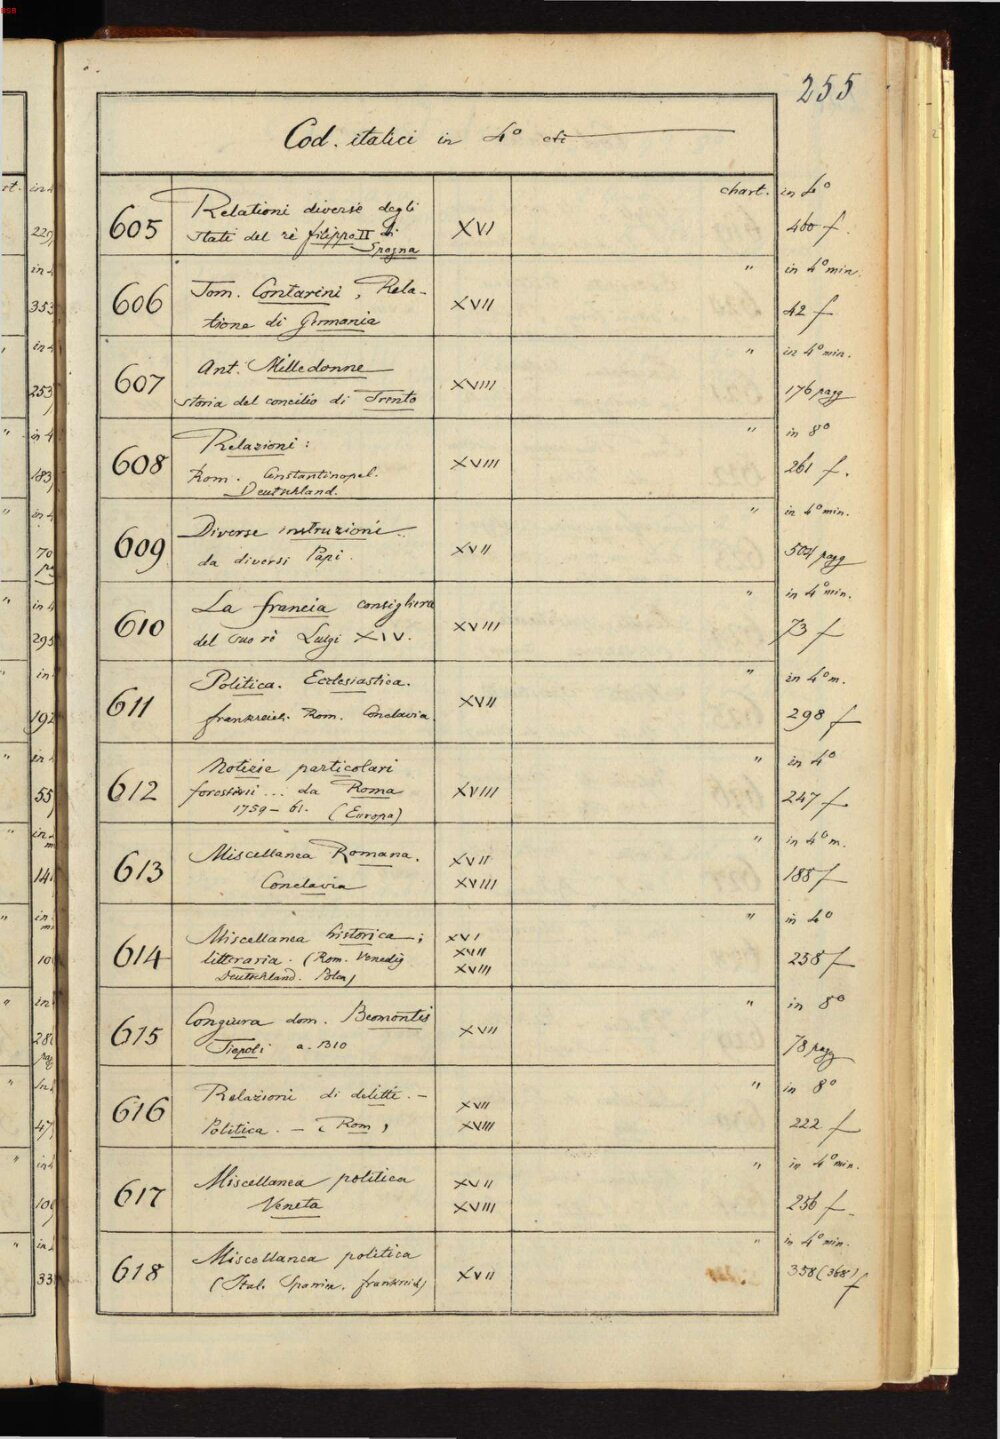 255
Cod. italici in 4°
605 Relationi diverse degli XVI chart. in 4°
stati del rè filippo II di 460 f.
Spagna
606 Tom. Contarini, Rela- XVII " in 4° min.
tione di Germania 42 f
607 Ant. Milledonne XVIII " in 4° min.
storia del concilio di Trento 176 pagg
608 Relazioni: XVIII " in 8°
Rom. Constantinopel. 261 f.
Deutschland.
609 Diverse instruzioni XVII " in 4° min.
da diversi Papi. 504 pagg
610 La francia consigliera XVIII " in 4° min.
del suo rè Luigi XIV. 73 f
611 Politica. Ecclesiastica. XVII " in 4° m.
frankreich. Rom. Conclavia. 298 f
612 Notizie particolari XVIII " in 4°
... da Roma 247 f
1759-61. (Europa)
613 Miscellanea Romana. XVII " in 4° m.
Conclavia XVIII 188 f
614 Miscellanea historica; XVI " in 4°
litteraria. (Rom. Venedig XVII 258 f
Deutschland. Polen) XVIII
615 Congiura dom. Beomontis XVII " in 8°
Tiepoli a. 1310 78 pagg
616 Relazioni di delitti. - XVII " in 8°
Politica. - (Rom) XVIII 222 f
617 Miscellanea politica XVII " in 4° min.
Veneta XVIII 256 f
618 Miscellanea politica XVII " in 4° min.
(Ital. Spanien. frankreich) 358 (368) f